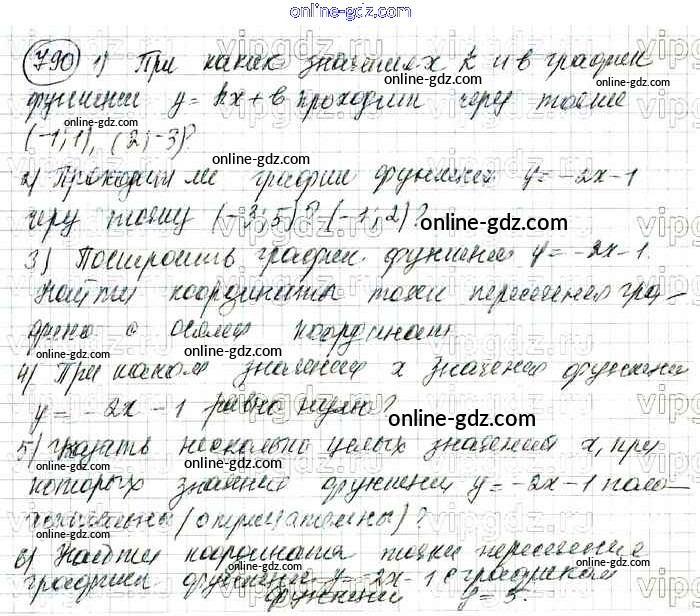 online-gdz.com
790 1) При каких значениях k и b график
функции y = kx + b проходит через точки
(-1; 1), (2; -3)?
online-gdz.com
2) Проходит ли график функции y = -2x - 1
через точку (-3; 5)? (-1; 2)?
online-gdz.com
3) Построить график функции y = -2x - 1.
Найти координаты точки пересечения гра-
фика с осями координат
online-gdz.com
4) При каком значении x значения функции
y = -2x - 1 равно нулю?
online-gdz.com
5) Указать несколько целых значений x, при
которых значение функции y = -2x - 1 поло-
жительны (отрицательны)?
online-gdz.com
6) Найти координаты точки пересечение
графика функции y = -2x - 1 с графиком
функции y = 5.